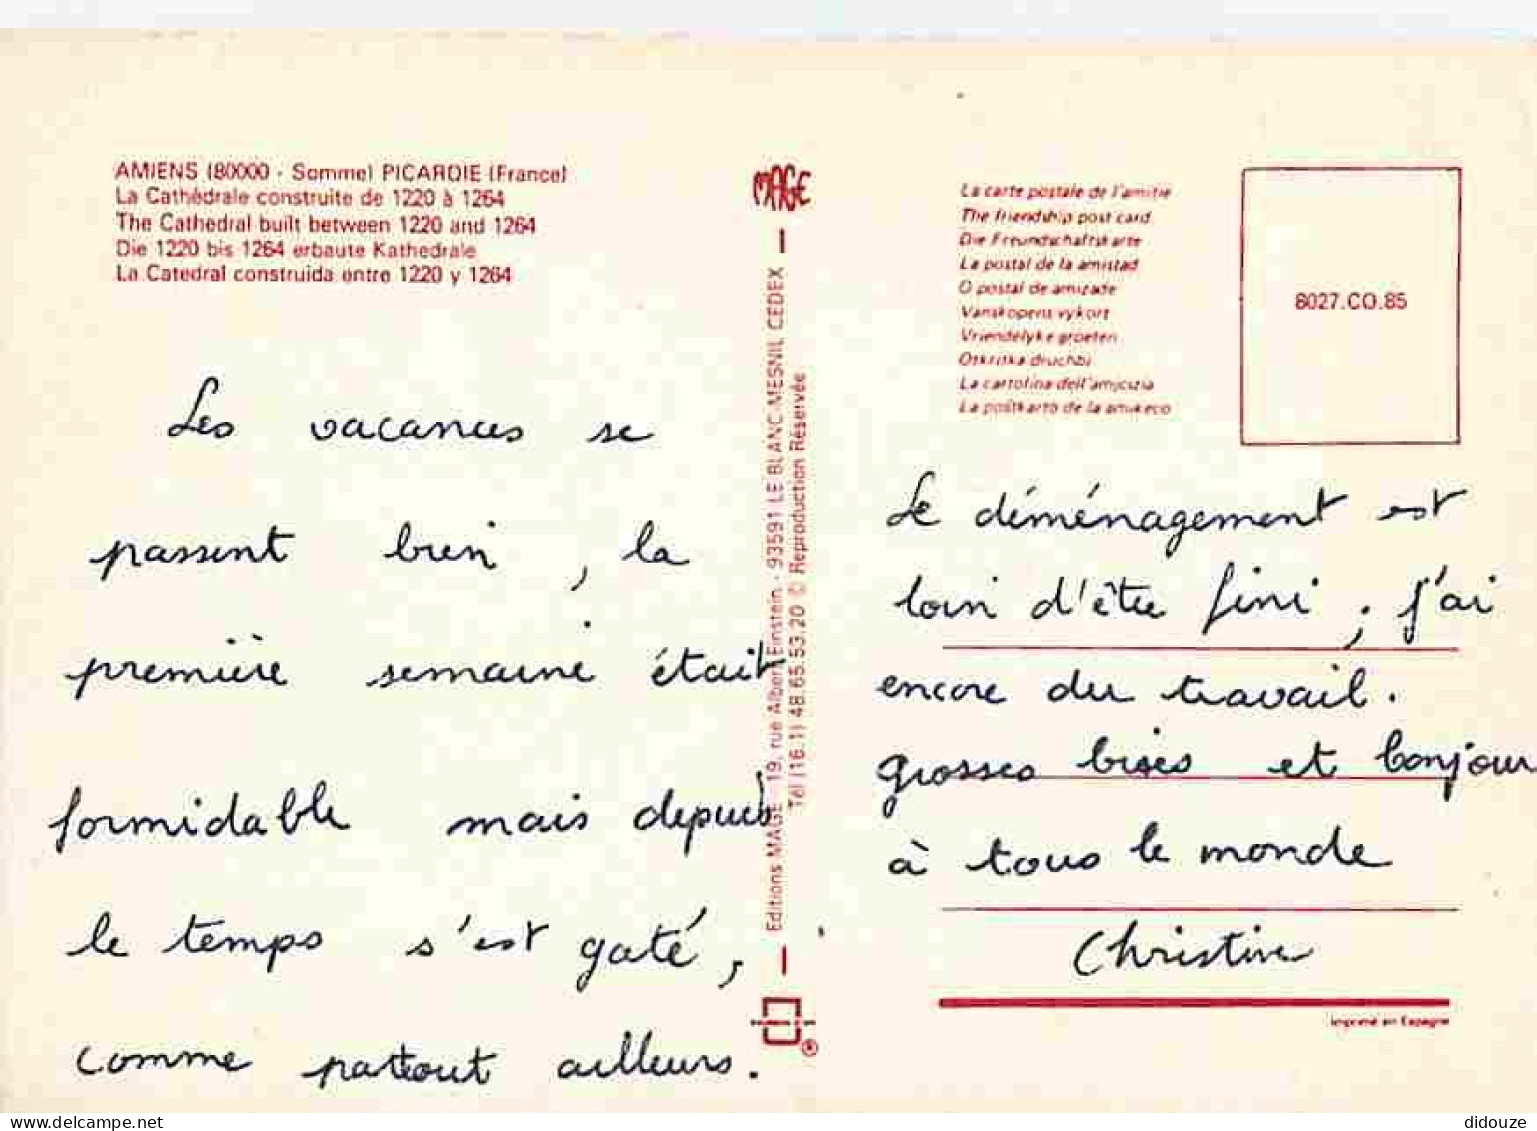 AMIENS (80000 - Somme) PICARDIE (France)
La Cathédrale construite de 1220 à 1264
The Cathedral built between 1220 and 1264
Die 1220 bis 1264 erbaute Kathedrale
La Catedral construida entre 1220 y 1264
Les vacances se
passent bien, la
première semaine était
formidable mais depuis
le temps s'est gaté,
comme partout ailleurs.
MAGE
Editions MAGE - 19, rue Albert Einstein - 93591 LE BLANC-MESNIL CEDEX
Tél (16.1) 48.65.53.20 © Reproduction Réservée
®
La carte postale de l'amitié
The friendship post card
Die Freundschaftskarte
La postal de la amistad
O postal de amizade
Vanskopens vykort
Vriendelyke groeten
Otkritka druchbi
La cartolina dell'amicizia
La poŝtkarto de la amikeco
8027.CO.85
Le déménagement est
loin d'être fini ; j'ai
encore du travail.
grosses bises et bonjour
à tous le monde
Christine
Imprimé en Espagne
delcampe.net
didouze